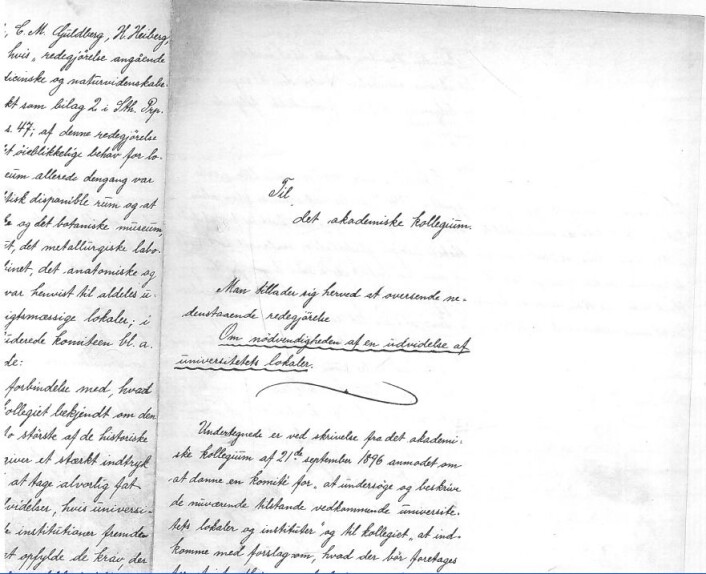 , C. M. Guldberg, H. Heiberg,
hvis „redegjörelse angående
dicinske og naturvidenskabe-
kt som bilag 2 i Sth. Prp.
s. 47; af denne redegjörelse
t öieblikkelige behov for lo-
eum allerede dengang var
tisk disponible rum og at
e og det botaniske museum,
et, det metallurgiske labo-
inet, det anatomiske og
var henvist til aldeles u-
igtsmæssige lokaler; i
uderede komiteen bl. a.
de:
forbindelse med, hvad
kollegiet bekjendt om den
to störste af de historiske
river et stærkt indtryk
at tage alvorlig fat
videlser, hvis universi-
institutioner fremdeles
opfylde de krav, der
Til
det akademiske kollegium.
Man tillader sig herved at oversende ne-
denstaaende redegjörelse
Om nödvendigheden af en udvidelse af
universitetets lokaler.
Undertegnede er ved skrivelse fra det akademi-
ske kollegium af 21de september 1896 anmodet om
at danne en komité for „at undersöge og beskrive
de nuværende tilstande vedkommende universite-
tets lokaler og institutter" og til kollegiet „at ind-
komme med forslag om, hvad der bör foretages